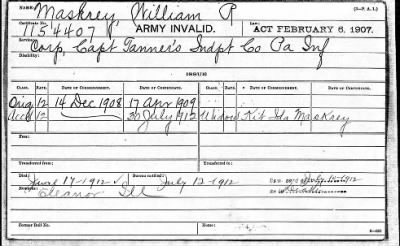 NAME: Maskrey, William R (3-P. A. I.)
1154407 ARMY INVALID. ACT FEBRUARY 6, 1907.
Service: Corp, Capt Tanner's Indpt Co Pa Inf
Disability:
ISSUE
CLASS. RATE. DATE OF COMMENCEMENT. DATE OF CERTIFICATE. CLASS. RATE. DATE OF COMMENCEMENT. DATE OF CERTIFICATE.
Orig 12 14 Dec 1908 17 Apr 1909
Accd 12 30 July 1912 Ida Maskrey
From:
Transferred from: Transferred to:
Died June 17-1912 Bureau notified July 12-1912 July 15-1912
Eleanor Ill
Former Roll No. Home: